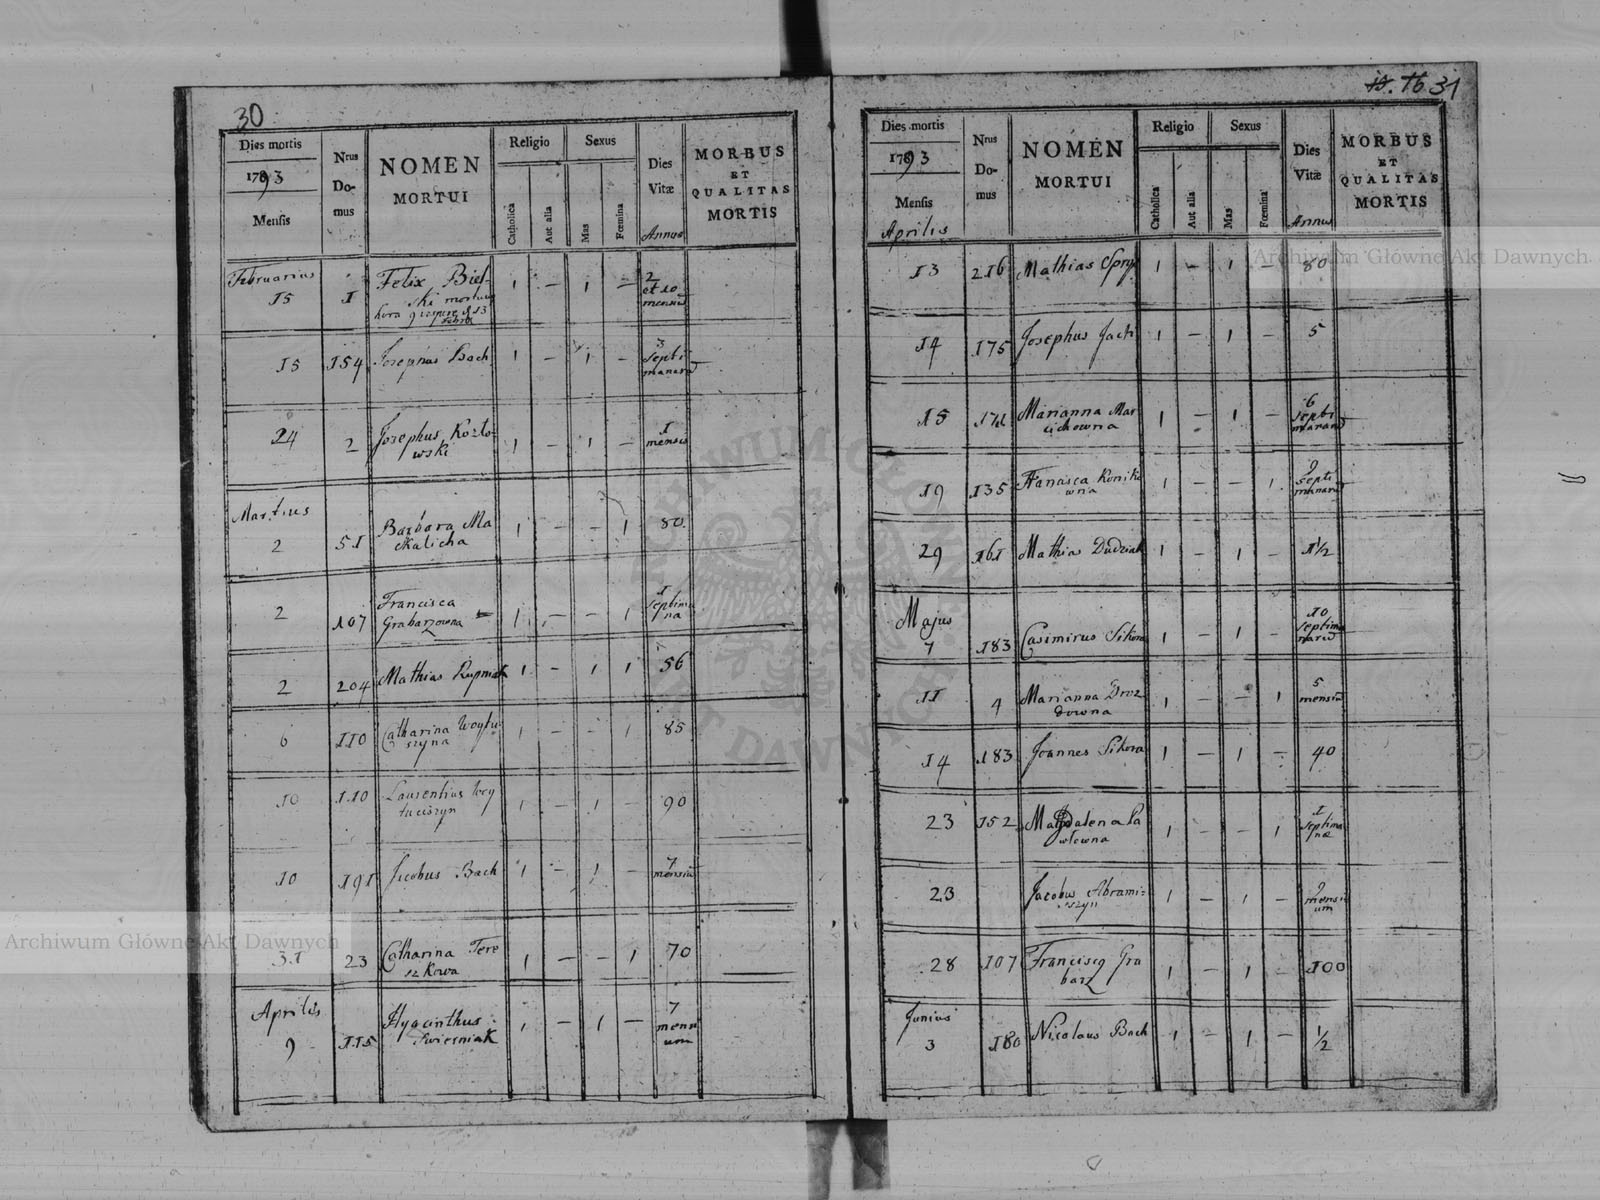 30
Dies mortis
1793
Mensis
Nrus
Do-
mus
NOMEN
MORTUI
Religio
Catholica
Aut alia
Sexus
Mas
Fœmina
Dies
Vitæ
Annus
MORBUS
ET
QUALITAS
MORTIS
Februarius
15 1 Felix Biel-
ski mortuus
hora 9 vespere d 13
febru
1 – 1 – 2
et 10
mensiũ
15 154 Josephus Bach 1 – 1 – 3
septi
manarũ
24 2 Josephus Kozło-
wski 1 – 1 – 1
mensis
Martius
2 51 Barbara Ma
chalicha 1 – – 1 80
2 107 Francisca
Grabarzowna 1 – – 1 1
septima
na
2 204 Mathias Rupniak 1 – 1 1 56
6 110 Catharina Woytu-
szyna 1 – – 1 85
10 110 Laurentius Woy
tuciszyn 1 – 1 – 90
10 191 Jacobus Bach 1 – 1 – 7
mensiũ
31 23 Catharina Tere
szkowa 1 – – 1 70
Aprilis
9 115 Hyacinthus
Swierniak 1 – 1 – 7
mensi
um
15. 16 31
Dies mortis
1793
Mensis
Aprilis
Nrus
Do-
mus
NOMEN
MORTUI
Religio
Catholica
Aut alia
Sexus
Mas
Fœmina
Dies
Vitæ
Annus
MORBUS
ET
QUALITAS
MORTIS
13 216 Mathias Spry 1 – 1 – 80
14 175 Josephus Jach 1 – 1 – 5
15 Marianna Mar
cichowna 1 – 1 – 6
septi
manarũ
19 135 Francisca Konik
owna 1 – – 1 9
septi
manarũ
29 161 Mathias Dudziak 1 – 1 – 1½
Majus
7 183 Casimirus Sikora 1 – 1 – 10
septima
narũ
11 4 Marianna Droz
downa 1 – 1 5
mensiũ
14 183 Joannes Sikora 1 – 1 – 40
23 152 Magdalena Pa
wlowna 1 – – 1 1
septima
næ
23 Jacobus Abrami-
szyn 1 – 1 – 9
mensi
um
28 107 Franciscq Gra
barz 1 – 1 – 100
Junius
3 180 Nicolaus Bach 1 – 1 – ½
Archiwum Główne Akt Dawnych
Archiwum Główne Akt Dawnych
ARCHIWUM GŁÓWNE AKT DAWNYCH